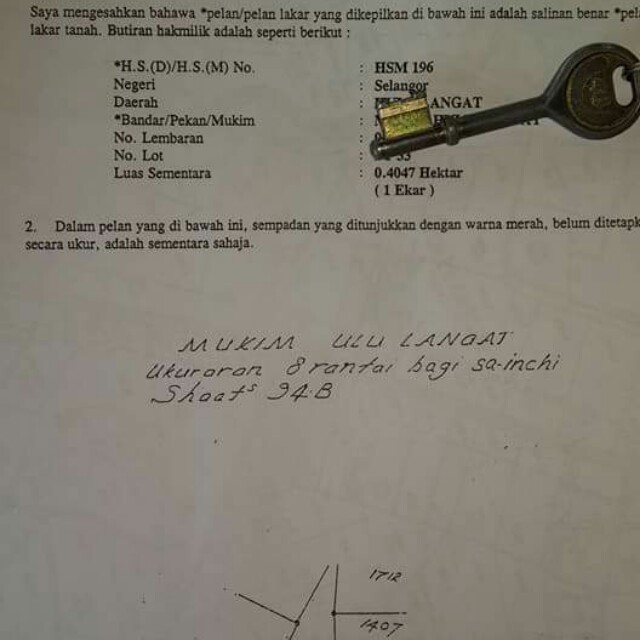 Saya mengesahkan bahawa *pelan/pelan lakar yang dikepilkan di bawah ini adalah salinan benar *pel
lakar tanah. Butiran hakmilik adalah seperti berikut :
*H.S.(D)/H.S.(M) No. : HSM 196
Negeri : Selangor
Daerah : ANGAT
*Bandar/Pekan/Mukim :
No. Lembaran :
No. Lot : 53
Luas Sementara : 0.4047 Hektar
( 1 Ekar )
2. Dalam pelan yang di bawah ini, sempadan yang ditunjukkan dengan warna merah, belum ditetapk
secara ukur, adalah sementara sahaja.
MUKIM ULU LANGAT
Ukuraran 8 rantai bagi sa-inchi
Shaats 94.B
1712
1407